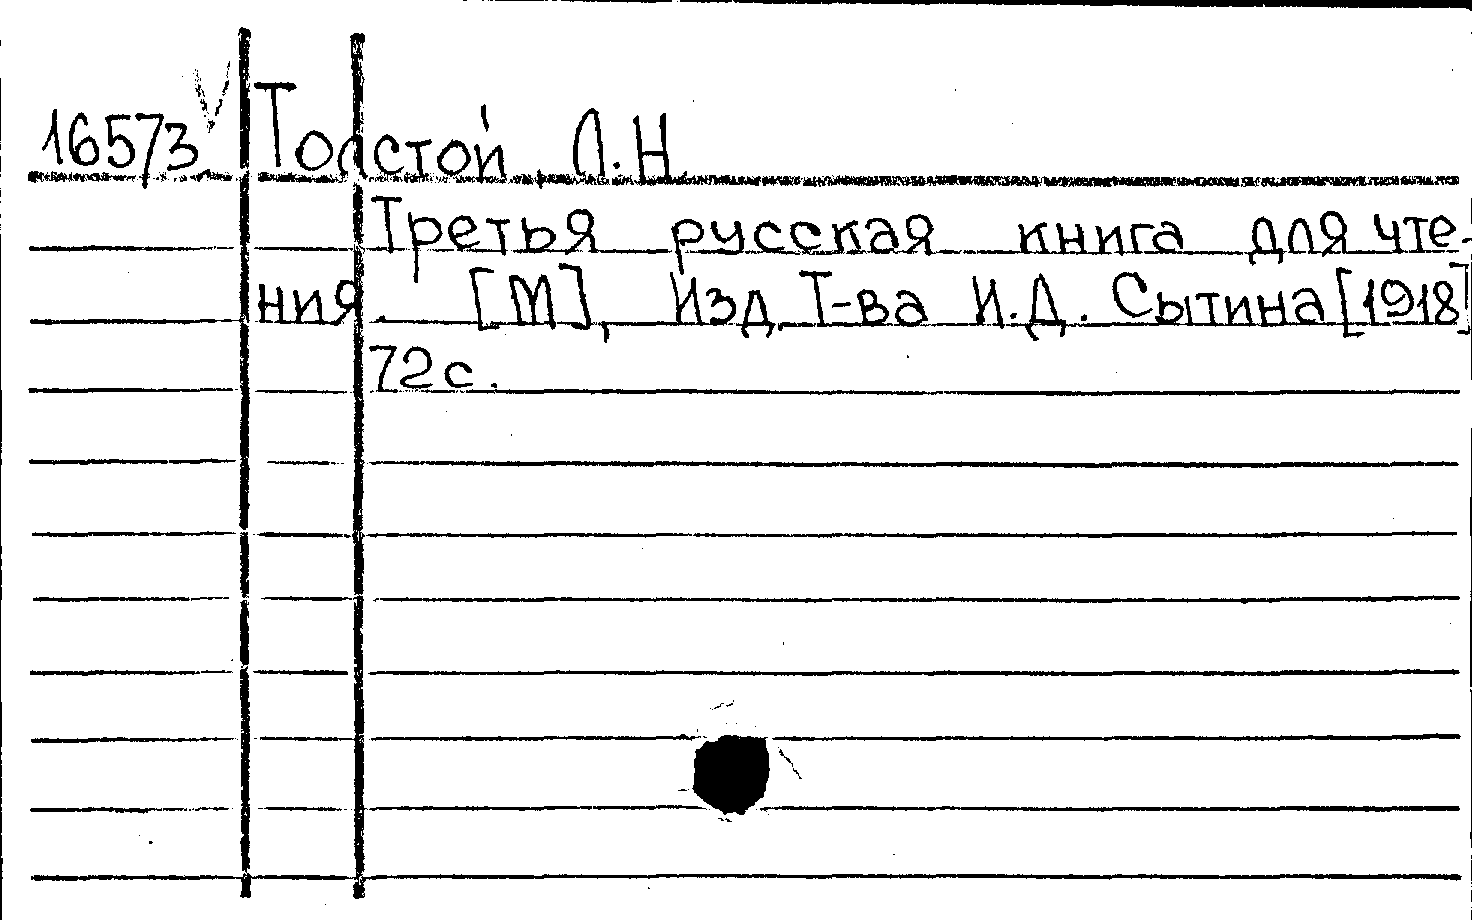 16573 Толстой, Л.Н.
Третья русская книга для чте-
ния. [М], Изд. Т-ва И.Д. Сытина [1918]
72с.